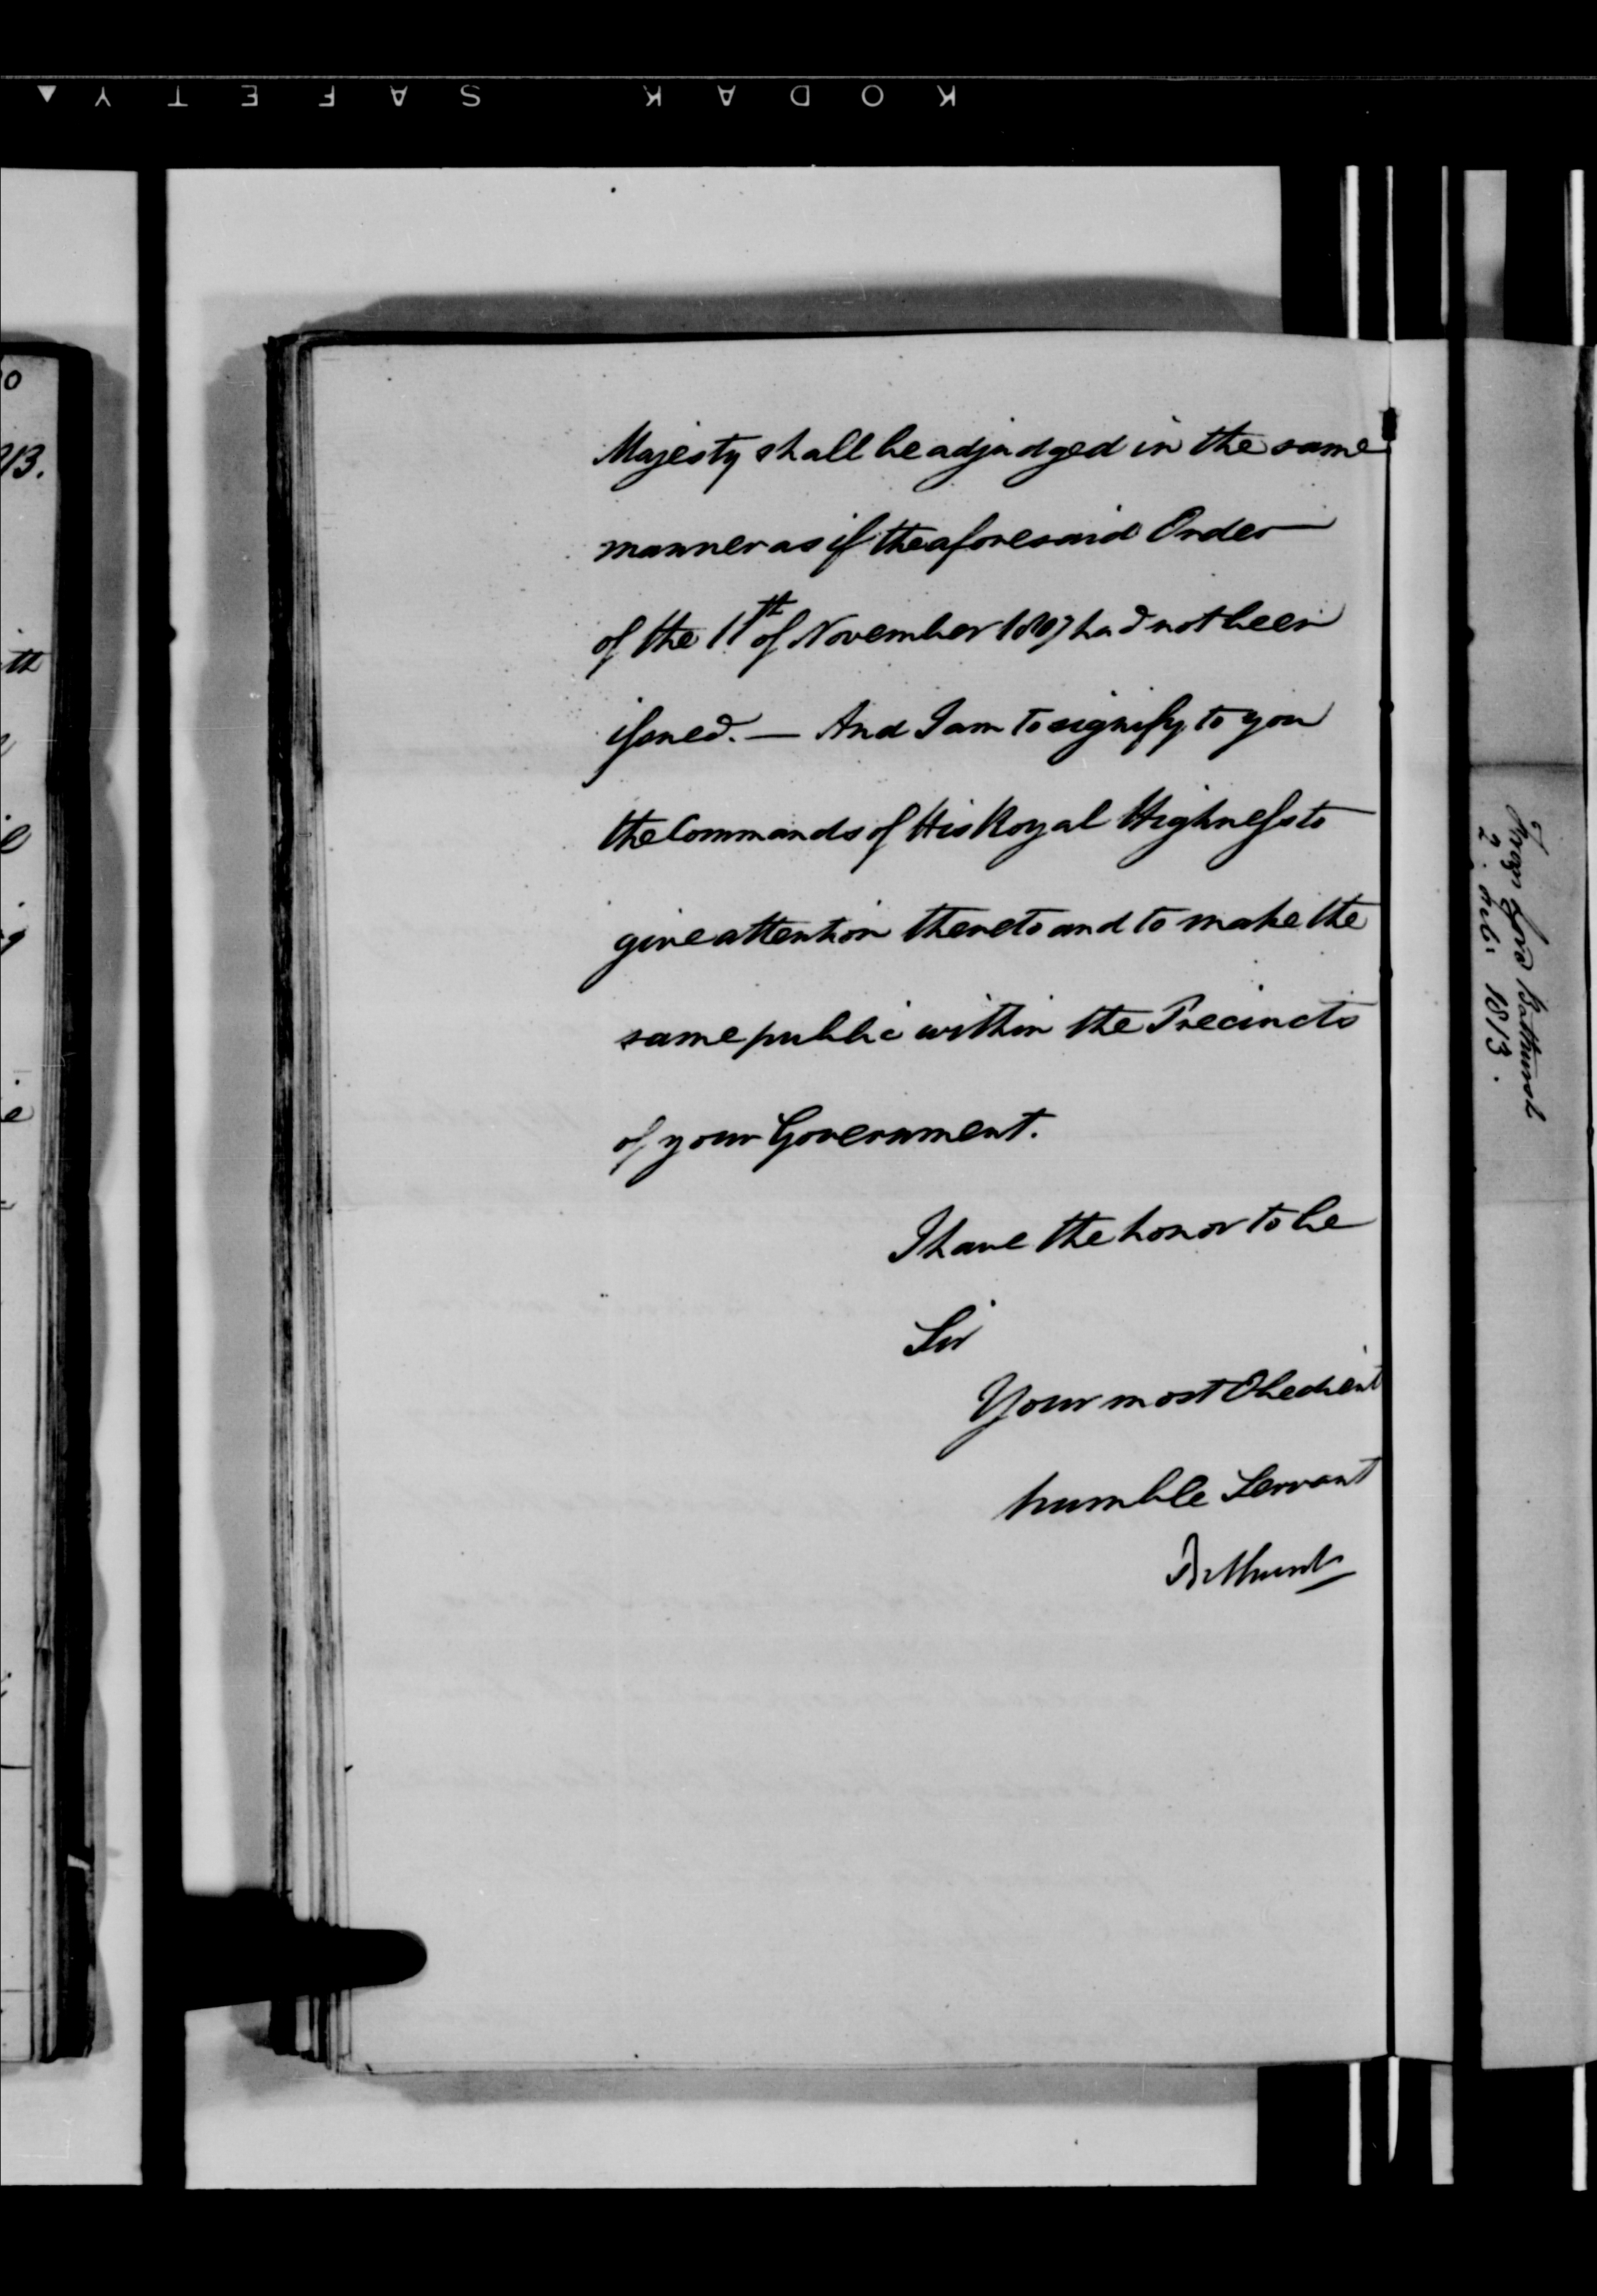 KODAK SAFETY
Majesty shall be adjudged in the same
manner as if the aforesaid Order
of the 11th of November 1807 had not been
issued. — And I am to signify to you
the Commands of His Royal Highness to
give attention thereto and to make the
same public within the Precincts
of your Government.
I have the honor to be
Sir
Your most Obedient
humble Servant
Bathurst
From Lord Bathurst
1813.